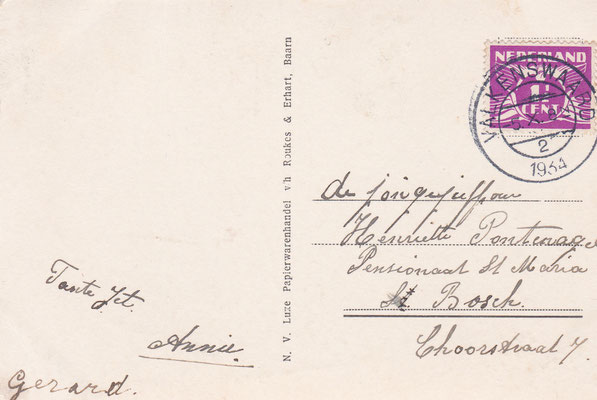 Tante Jet.
Annie
Gerard.
N. V. Luxe Papierwarenhandel v/h Roukes & Erhart, Baarn
NEDERLAND
1½
CENT
VALKENSWAARD
2
1934
de
Henriette
Pensionaat St Maria
Bosch.
Choorstraat 7.